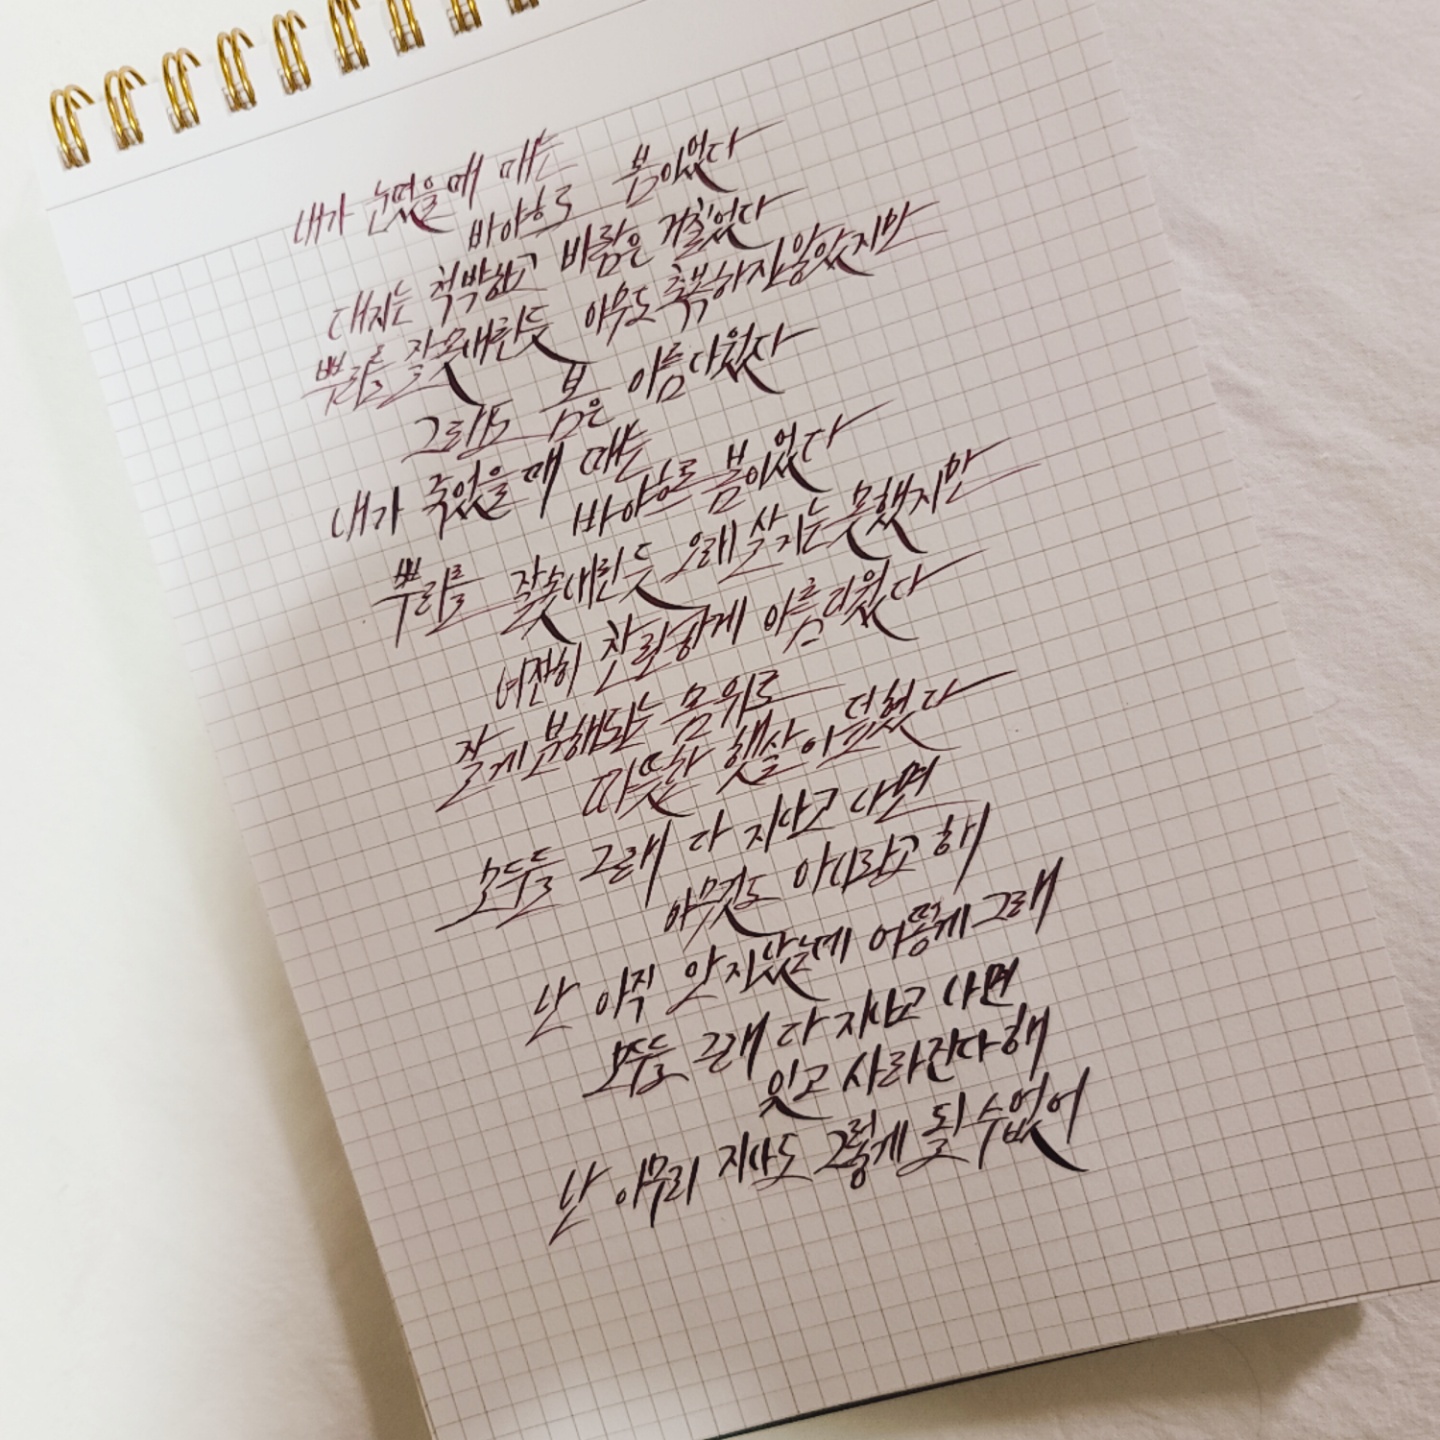 내가 눈떴을때 때는
바야흐로 봄이었다
대지는 척박하고 바람은 거칠었다
뿌리를 잘못내린듯 아무도 축복하지않았지만
그래도 봄은 아름다웠다
내가 죽었을때 때는
바야흐로 봄이었다
뿌리를 잘못내린듯 오래 살지는 못했지만
여전히 찬란하게 아름다웠다
잘게 분해되는 몸위로
따뜻한 햇살이 덮혔다
모두들 그래 다 지나고 나면
아무것도 아니라고 해
난 아직 안 지났는데 어떻게 그래
모두들 그래 다 지나고 나면
잊고 사라진다 해
난 아무리 지나도 그렇게 될 수 없어